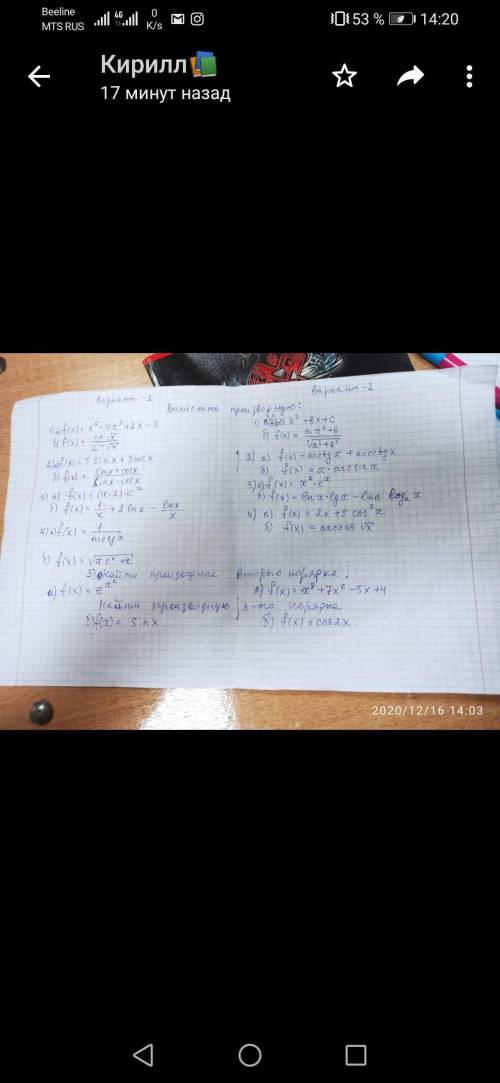 Beeline
MTS RUS
4G
0
K/s
53 %
14:20
Кирилл
17 минут назад
Вариант -1
Вариант -2
производную:
1) а) f(x) = x⁵ - 4x³ + 2x - 3
б) f(x) = (1+√x)/(2-√x)
2) а) f(x) = 5 sin x + 3 cos x
б) f(x) = (sin x + cos x)/(sin x - cos x)
б) f(x) = 1/x + 2 ln x - ln x/x
4) а) f(x) = 1/arctg x
5) Найти производная второго порядка:
а) f(x) = e^x²
Найти производную n-ого порядка
б) f(x) = sin x
x² + bx + c
б) f(x) = (ax⁶+b)/√(a²+b²)
2) а) f(x) = arctg x + arcctg x
б) f(x) = x · arcsin x
3) а) f(x) = x⁷ · eˣ
б) f(x) = ln x · lg x - ln a logₐ x
4) а) f(x) = 2x + 5 cos³ x
б) f(x) = arccos √x
а) f(x) = x⁸ + 7x⁶ - 5x + 4
б) f(x) = cos 2x.
2020/12/16 14:03